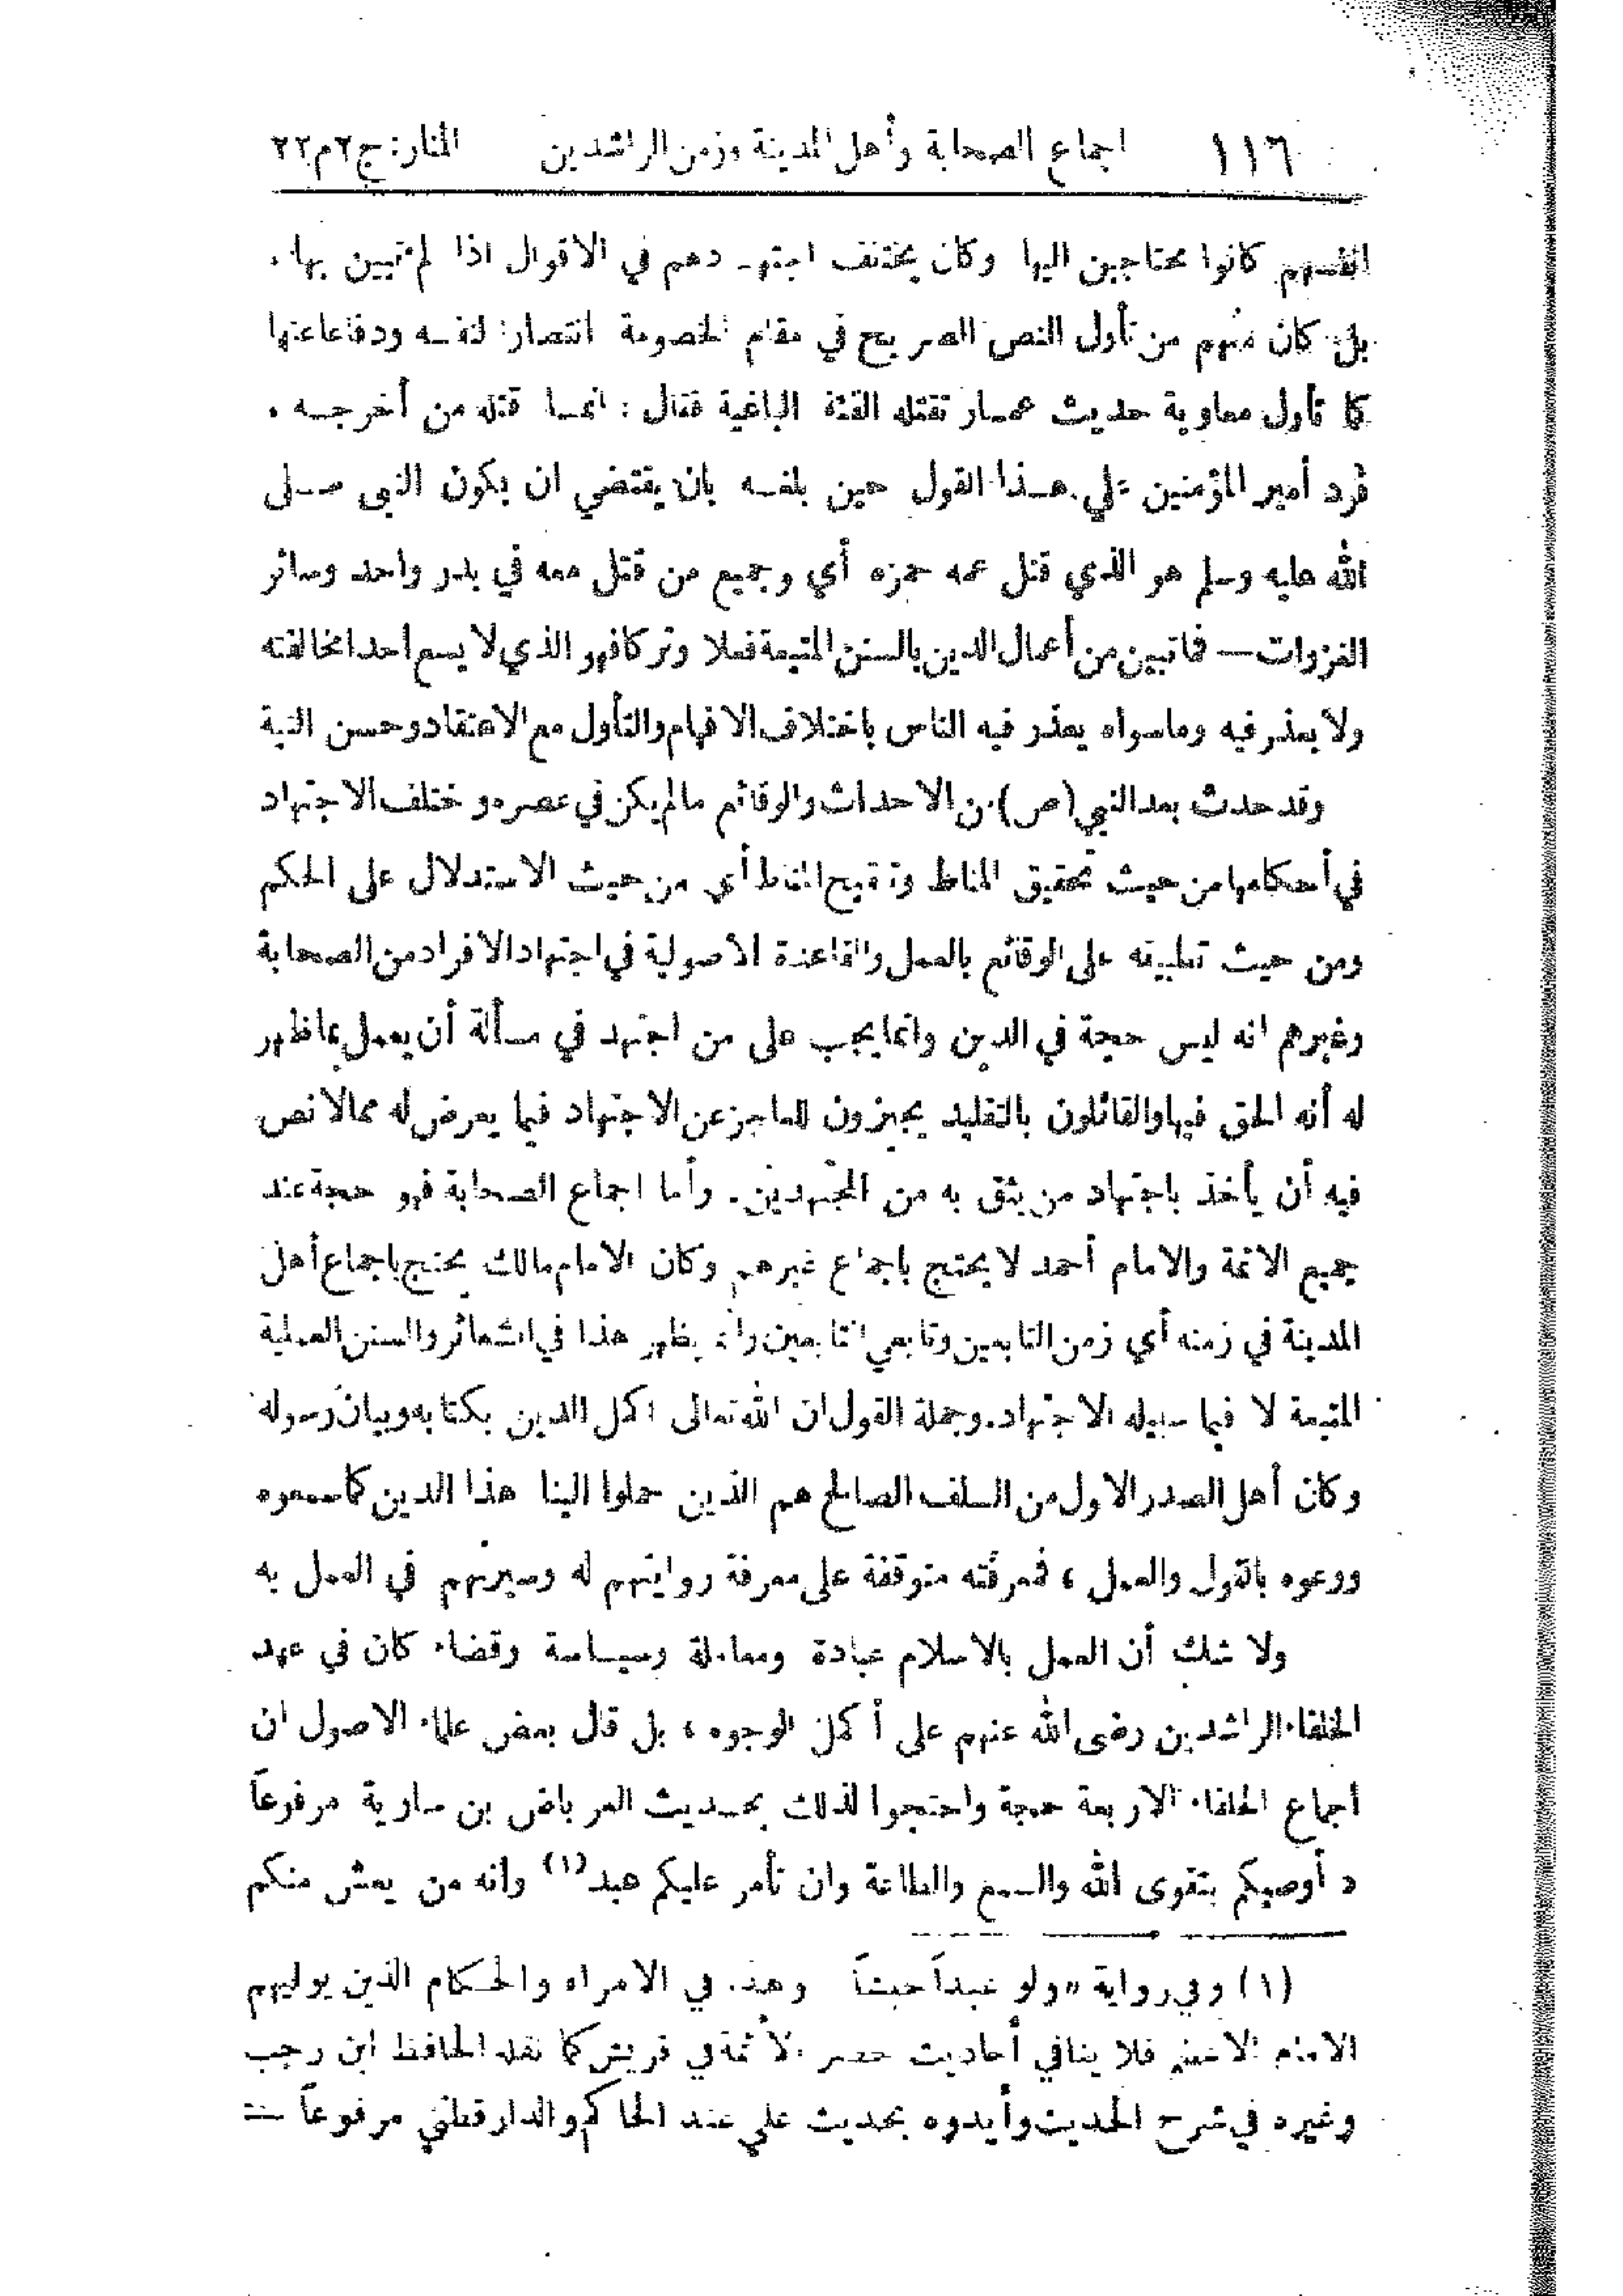 ١١٦ اجماع الصحابة وأهل المدينة وزمن الراشدين المنار: ج٢م٢٢
انفسهم كانوا محتاجين اليها وكان يختلف اجتهادهم في الاقوال اذا لم تبين بها.
بل كان منهم من تأول النص الصريح في مقام الخصومة انتصارا لنفسه ودفاعا عنها
كما تأول معاوية حديث عمار تقتله الفئة الباغية فقال : انما قتله من أخرجه .
فرد أمير المؤمنين علي هذا القول حين بلغه بان يقتضي ان يكون النبي صلى
الله عليه وسلم هو الذي قتل عمه حمزه أي وجميع من قتل معه في بدر واحد وسائر
الغزوات — فما تبين من أعمال الدين بالسنن المتبعة فعلا وتركا فهو الذي لا يسع احدا مخالفته
ولا يعذر فيه وما سواه يعذر فيه الناس باختلاف الافهام والتأول مع الاعتقاد وحسن النية
وقد حدث بعد النبي (ص) من الاحداث والوقائع ما لم يكن في عصره و ختلف الاجتهاد
في أحكامها من حيث تحقيق المناط وتنقيح المناط أي من حيث الاستدلال على الحكم
ومن حيث تطبيقه على الوقائع بالعمل والقاعدة الأصولية في اجتهاد الافراد من الصحابة
وغيرهم انه ليس حجة في الدين وانما يجب على من اجتهد في مسألة أن يعمل بما ظهر
له أنه الحق فيها والقائلون بالتقليد يجيزون للعاجز عن الاجتهاد فيما يعرض له مما لا نص
فيه أن يأخذ باجتهاد من يثق به من المجتهدين. وأما اجماع الصحابة فهو حجة عند
جميع الائمة والامام أحمد لا يحتج باجماع غيرهم وكان الامام مالك يحتج باجماع أهل
المدينة في زمنه أي زمن التابعين وتابعي التابعين وانما يظهر هذا في الشعائر والسنن العملية
المتبعة لا فيما سبيله الاجتهاد. وجملة القول ان الله تعالى اكمل الدين بكتابه وبيان رسوله
وكان أهل الصدر الاول من السلف الصالح هم الذين حملوا الينا هذا الدين كما سمعوه
ووعوه بالقول والعمل ، فمعرفته متوقفة على معرفة روايتهم له وسيرتهم في العمل به
ولا شك أن العمل بالاسلام عبادة ومعاملة وسياسة وقضاء كان في عهد
الخلفاء الراشدين رضى الله عنهم على أكمل الوجوه ، بل قال بعض علماء الاصول ان
اجماع الخلفاء الاربعة حجة واحتجوا لذلك بحديث العرباض بن سارية مرفوعاً
« أوصيكم بتقوى الله والسمع والطاعة وان تأمر عليكم عبد (١) وانه من يعش منكم
(١) وفي رواية «ولو عبداً حبشياً وهذه في الامراء والحكام الذين يوليهم
الامام الاعظم فلا ينافي أحاديث حصر الأئمة في قريش كما نقله الحافظ ابن رجب
وغيره في شرح الحديث وأيدوه بحديث علي عند الحاكم والدار قطني مرفوعاً =